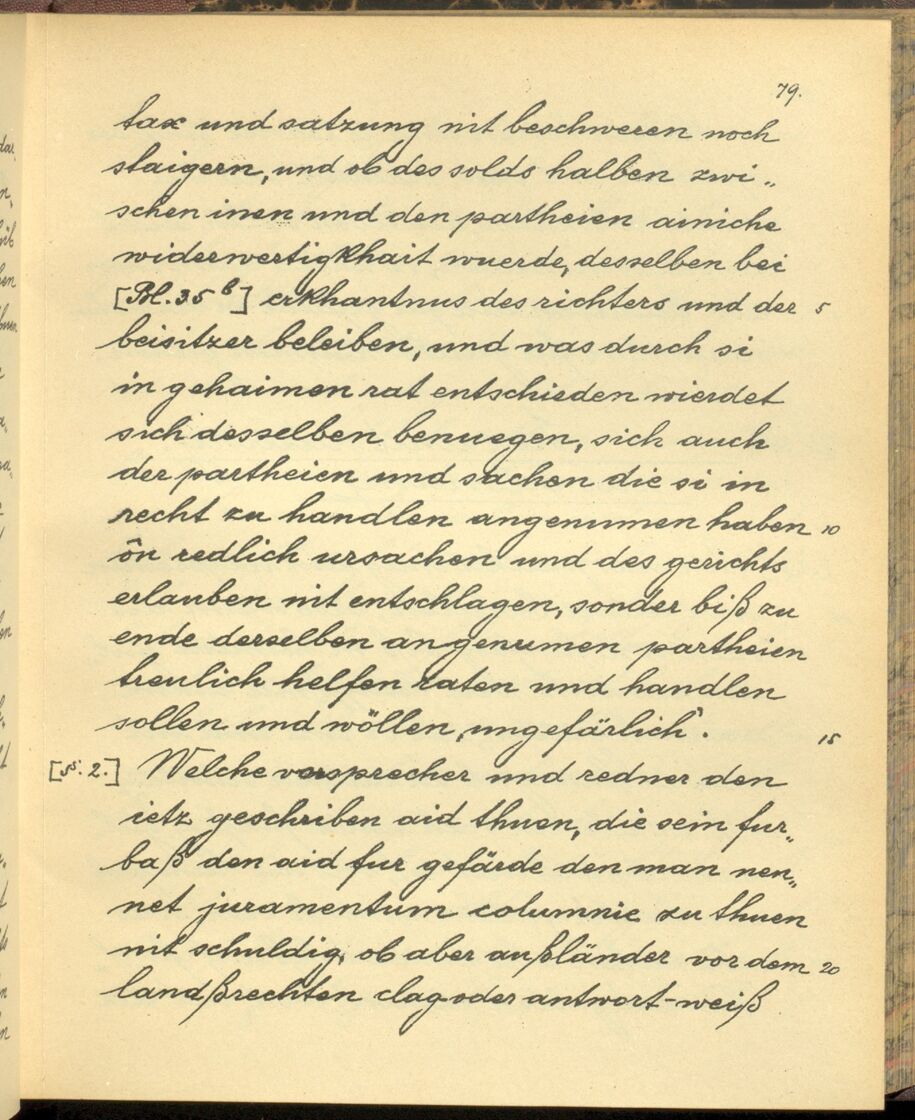 79.
tax und satzung nit beschweren noch
staigern, und ob des solds halben zwi„
schen inen und den partheien ainiche
widerwertigkhait wuerde, desselben bei
[Bl. 35 b] erkhantnus des richters und der 5
beisitzer beleiben, und was durch si
in gehaimen rat entschieden wierdet
sich desselben benuegen, sich auch
der partheien und sachen die si in
recht zu handlen angenumen haben 10
ôn redlich ursachen und des gerichts
erlauben nit entschlagen, sonder biß zu
ende derselben angenumen partheien
treulich helfen raten und handlen
sollen und wöllen, ungefärlich“. 15
[§. 2.] Welche vorsprecher und redner den
ietz geschriben aid thuen, die sein fur„
baß den aid fur gefärde den man nen„
net juramentum columnie zu thuen
nit schuldig, ob aber außländer vor dem 20
landßrechten clag oder antwort-weiß